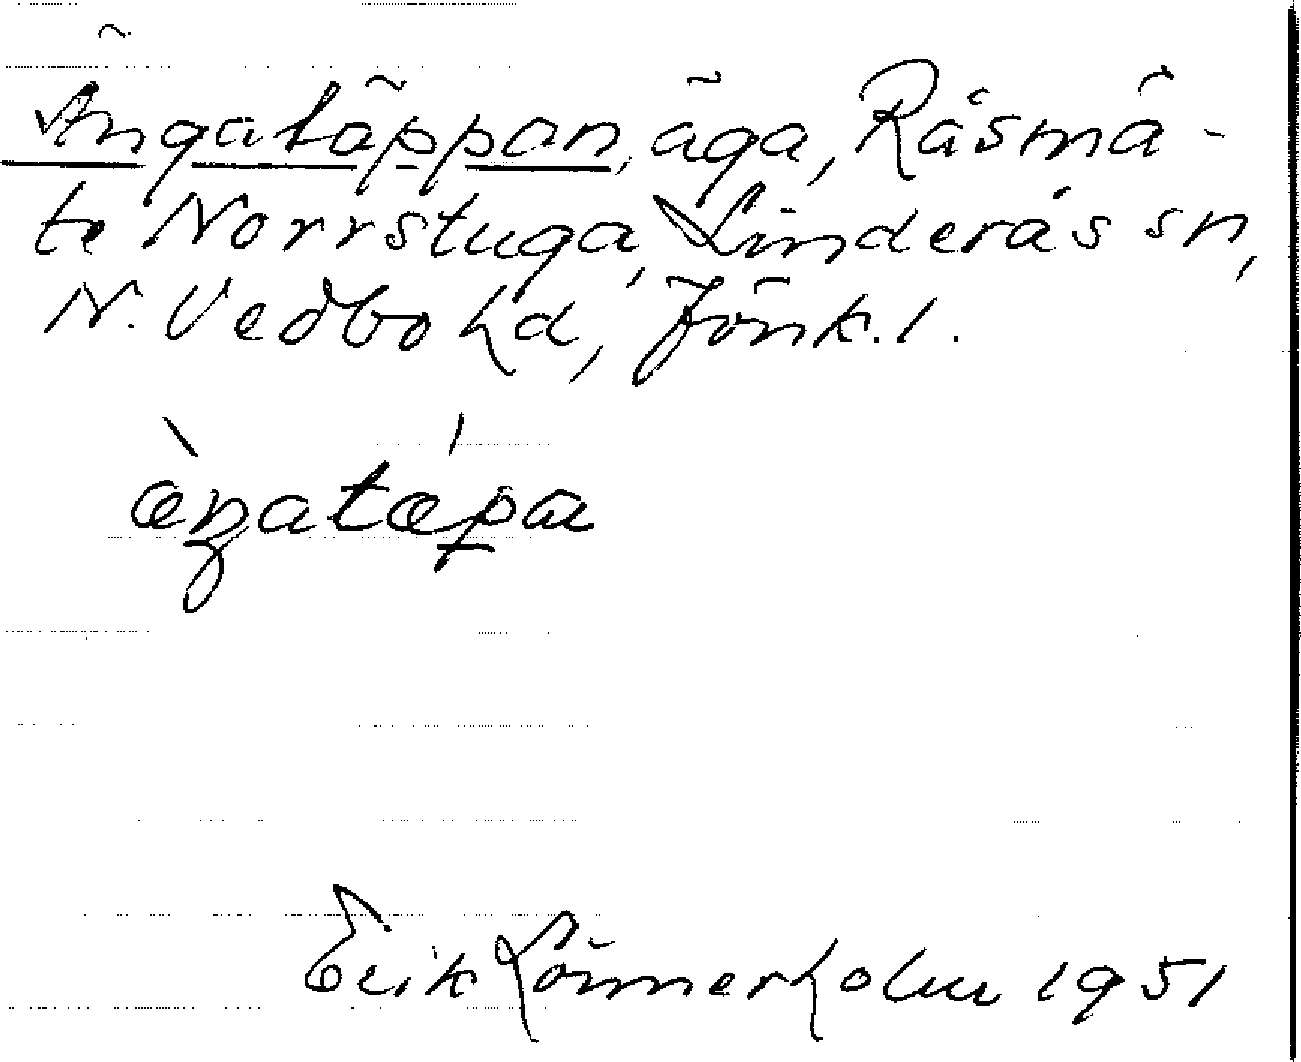 Ängatäppan, äga, Råsmå-
te Norrstuga, Linderås sn,
N. Vedbo hd, Jönk. l.
Erik Lönnerholm 1951